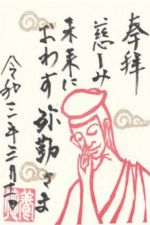 奉拝
慈しみ
未来に
おわす
弥勒さま
令和二年三月